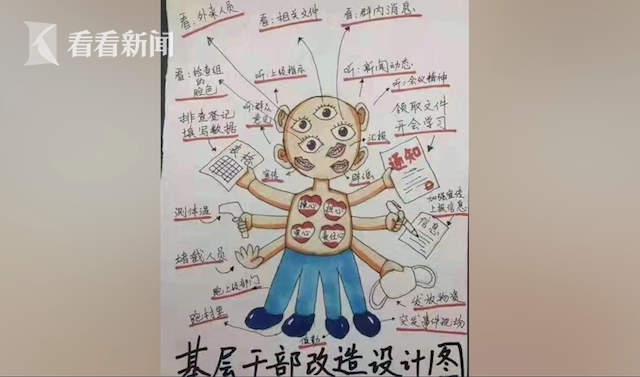 看看新闻
看:外来人员
看:相关文件
看:群内消息
看:检查组
的
脸色
听:上级指示
听:新闻动态
听:会议精神
听:群众
意见
排查登记
填写数据
汇报
领取文件
开会学习
表格
宣传
辟谣
通知
测体温
操心
担心
爱心
责任心
信息
加强宣传
上报信息
堵截人员
跑上级部门
发放物资
跑村里
值勤
突发事件现场
基层干部改造设计图